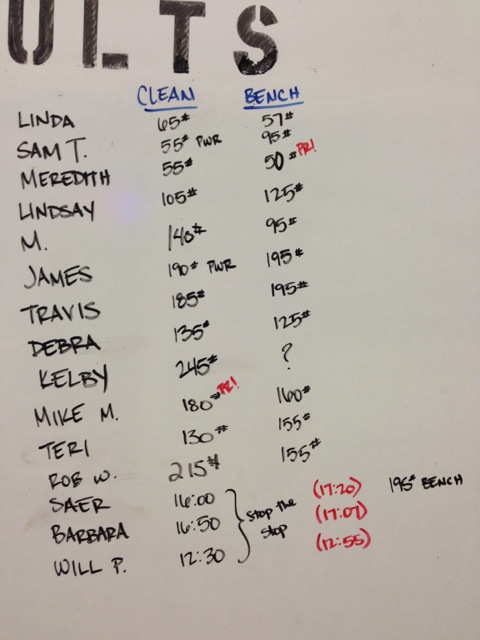 ULTS
CLEAN BENCH
LINDA 65# 57#
SAM T. 55# PWR 95#
MEREDITH 55# 50# PR!
LINDSAY 105# 125#
M. 140# 95#
JAMES 190# PWR 195#
TRAVIS 185# 195#
DEBRA 135# 125#
KELBY 245# ?
MIKE M. 180# PR! 160#
TERI 130# 155#
ROB W. 215# 155#
SAER 16:00 (17:20) 195# BENCH
BARBARA 16:50 } Stop the (17:07)
Stop
WILL P. 12:30 (12:55)